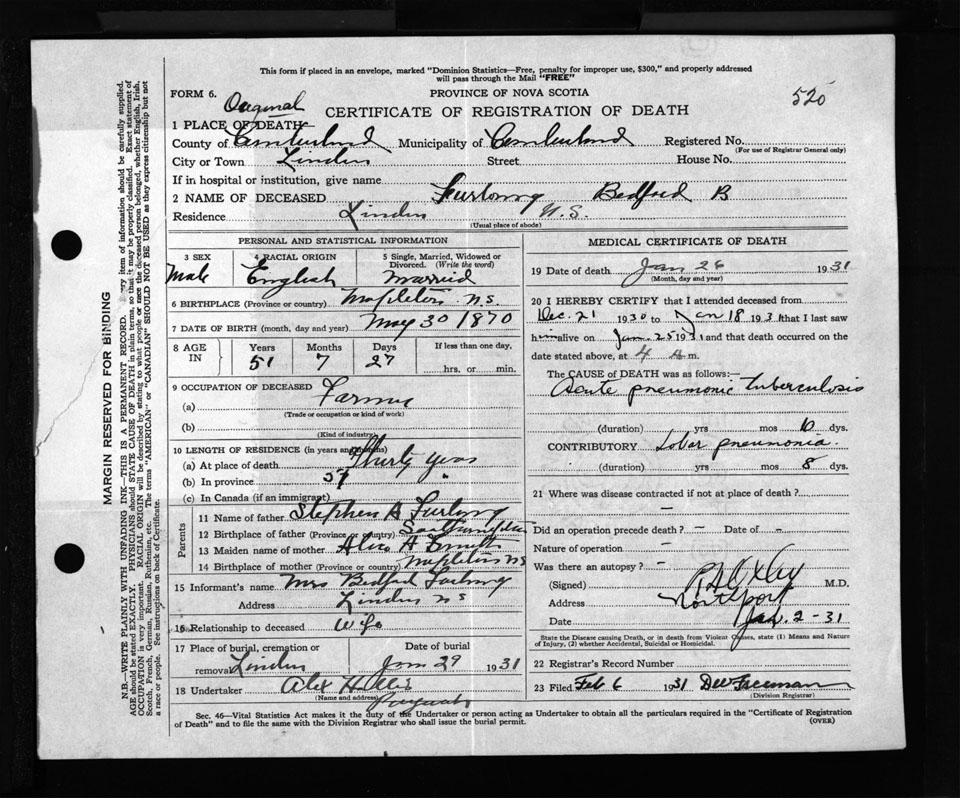 This form if placed in an envelope, marked "Dominion Statistics—Free, penalty for improper use, $300," and properly addressed
will pass through the Mail "FREE"
FORM 6. PROVINCE OF NOVA SCOTIA 520
Original CERTIFICATE OF REGISTRATION OF DEATH
1 PLACE OF DEATH
County of Cumberland Municipality of Cumberland Registered No.
(For use of Registrar General only)
City or Town Linden Street House No.
If in hospital or institution, give name
2 NAME OF DECEASED Furlong Bedford B
Residence Linden N.S.
(Usual place of abode)
PERSONAL AND STATISTICAL INFORMATION
3 SEX 4 RACIAL ORIGIN 5 Single, Married, Widowed or Divorced. (Write the word)
Male English Married
6 BIRTHPLACE (Province or country) Mapleton N.S.
7 DATE OF BIRTH (month, day and year) May 30 1870
8 AGE IN Years Months Days If less than one day,
51 7 27 hrs. or min.
9 OCCUPATION OF DECEASED
(a) Farmer
(Trade or occupation or kind of work)
(b)
(Kind of industry)
10 LENGTH OF RESIDENCE (in years and months)
(a) At place of death Thirty years
(b) In province 51 "
(c) In Canada (if an immigrant)
Parents
11 Name of father Stephen A Furlong
12 Birthplace of father (Province or country) Southampton
13 Maiden name of mother A Smith
14 Birthplace of mother (Province or country) Mapleton N.S
15 Informant's name Mrs Bedford Furlong
Address Linden N S
16 Relationship to deceased Wife
17 Place of burial, cremation or removal Linden Date of burial Jan 29 1931
18 Undertaker Alex H
(Name and address) Pugwash
MEDICAL CERTIFICATE OF DEATH
19 Date of death Jan 26 1931
(Month, day and year)
20 I HEREBY CERTIFY that I attended deceased from
Dec. 21 1930 to Jan 18 1931 that I last saw
him alive on Jan. 25 1931 and that death occurred on the
date stated above, at 4 A m.
The CAUSE OF DEATH was as follows:—
Acute pneumonic tuberculosis
(duration) yrs mos 10 dys.
CONTRIBUTORY Lobar pneumonia.
(duration) yrs mos 8 dys.
21 Where was disease contracted if not at place of death?
—
Did an operation precede death? — Date of —
Nature of operation —
Was there an autopsy? —
(Signed) Oxley M.D.
Address Northport
Date Jan. 2-31
State the Disease causing Death, or in death from Violent Causes, state (1) Means and Nature
of Injury, (2) whether Accidental, Suicidal or Homicidal.
22 Registrar's Record Number
23 Filed Feb 6 1931 Freeman
(Division Registrar)
Sec. 46—Vital Statistics Act makes it the duty of the Undertaker or person acting as Undertaker to obtain all the particulars required in the "Certificate of Registration
of Death" and to file the same with the Division Registrar who shall issue the burial permit. (OVER)
MARGIN RESERVED FOR BINDING
N.B.—WRITE PLAINLY WITH UNFADING INK—THIS IS A PERMANENT RECORD. item of information should be carefully supplied.
AGE should be stated EXACTLY. PHYSICIANS should STATE CAUSE OF DEATH in plain terms, so that it may be properly classified. Exact statement of
OCCUPATION is very important. RACIAL ORIGIN will be described by stating to what people or race the deceased person belonged, whether English, Irish,
Scotch, French, German, Russian, Ruthenian, etc. The terms "AMERICAN" or "CANADIAN" SHOULD NOT BE USED as they express citizenship but not
a race or people. See instructions on back of Certificate.